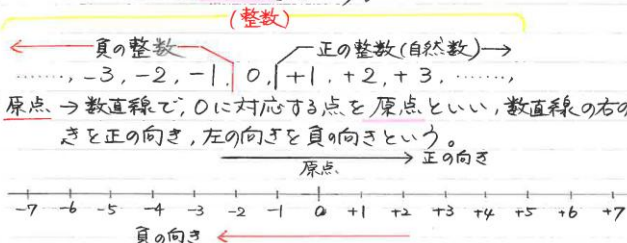 (整数)
負の整数 正の整数(自然数)
……, -3, -2, -1, 0, +1, +2, +3, ……,
原点 → 数直線で, 0に対応する点を原点といい, 数直線の右の
きを正の向き, 左の向きを負の向きという。
原点 正の向き
-7 -6 -5 -4 -3 -2 -1 0 +1 +2 +3 +4 +5 +6 +7
負の向き